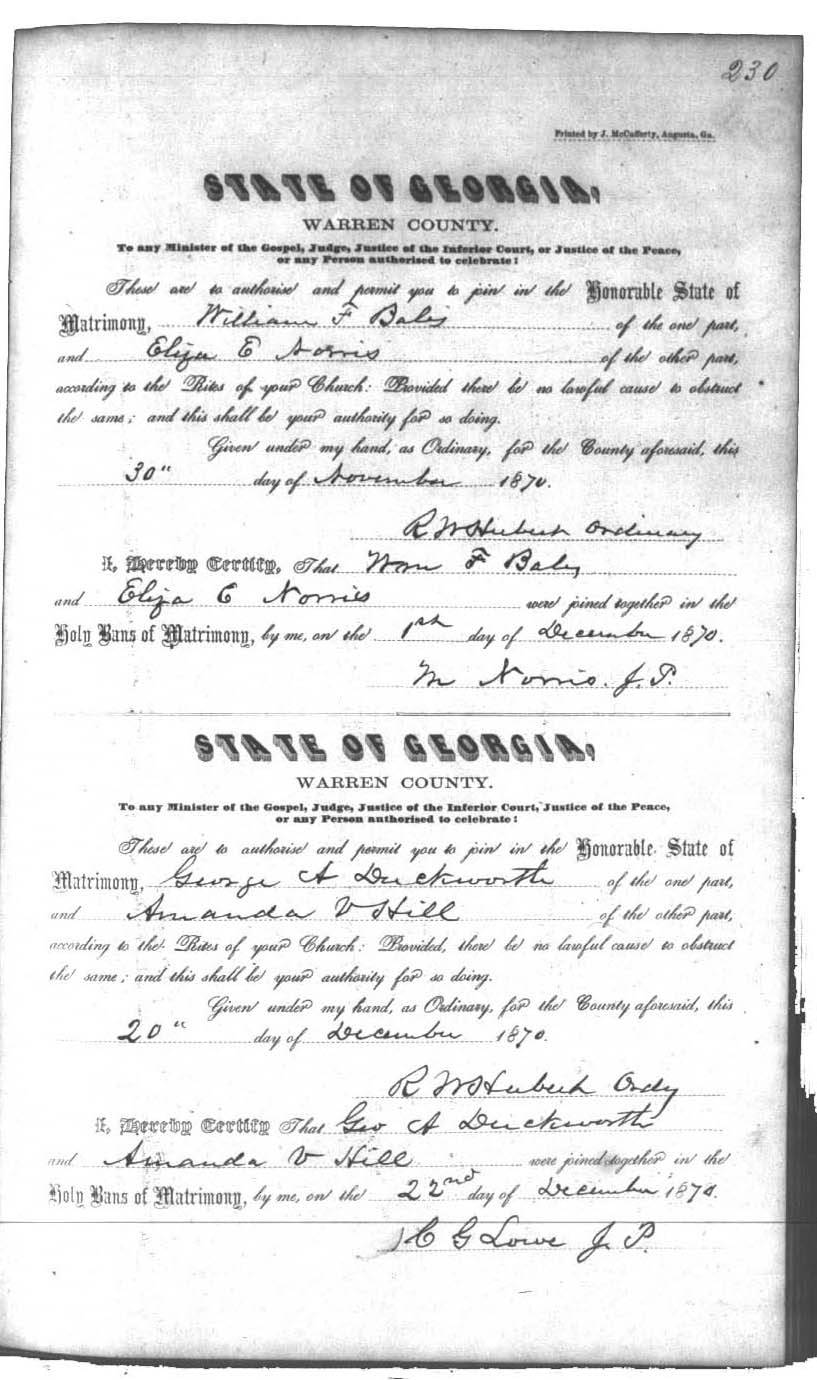 230
Printed by J. McCafferty, Augusta, Ga.
STATE OF GEORGIA,
WARREN COUNTY.
To any Minister of the Gospel, Judge, Justice of the Inferior Court, or Justice of the Peace,
or any Person authorised to celebrate:
These are to authorise and permit you to join in the Honorable State of
Matrimony, William F Bales of the one part,
and Eliza E Norris of the other part,
according to the Rites of your Church: Provided there be no lawful cause to obstruct
the same; and this shall be your authority for so doing.
Given under my hand, as Ordinary, for the County aforesaid, this
30" day of November 1870.
R W Hubert Ordinary
I, Hereby Certify, That Wm F
and Eliza C Norries were joined together in the
Holy Bans of Matrimony, by me, on the 1st day of December 1870.
M Norris. J. P.
STATE OF GEORGIA,
WARREN COUNTY.
To any Minister of the Gospel, Judge, Justice of the Inferior Court, Justice of the Peace,
or any Person authorised to celebrate:
These are to authorise and permit you to join in the Honorable State of
Matrimony, George A Duckworth of the one part,
and Amanda V Hill of the other part,
according to the Rites of your Church: Provided, there be no lawful cause to obstruct
the same; and this shall be your authority for so doing.
Given under my hand, as Ordinary, for the County aforesaid, this
20" day of December 1870.
R W Hubert Ordy
I, Hereby Certify That Geo A Duckworth
and Amanda V Hill were joined together in the
Holy Bans of Matrimony, by me, on the 22nd day of December 1870.
C G Lowe J. P.